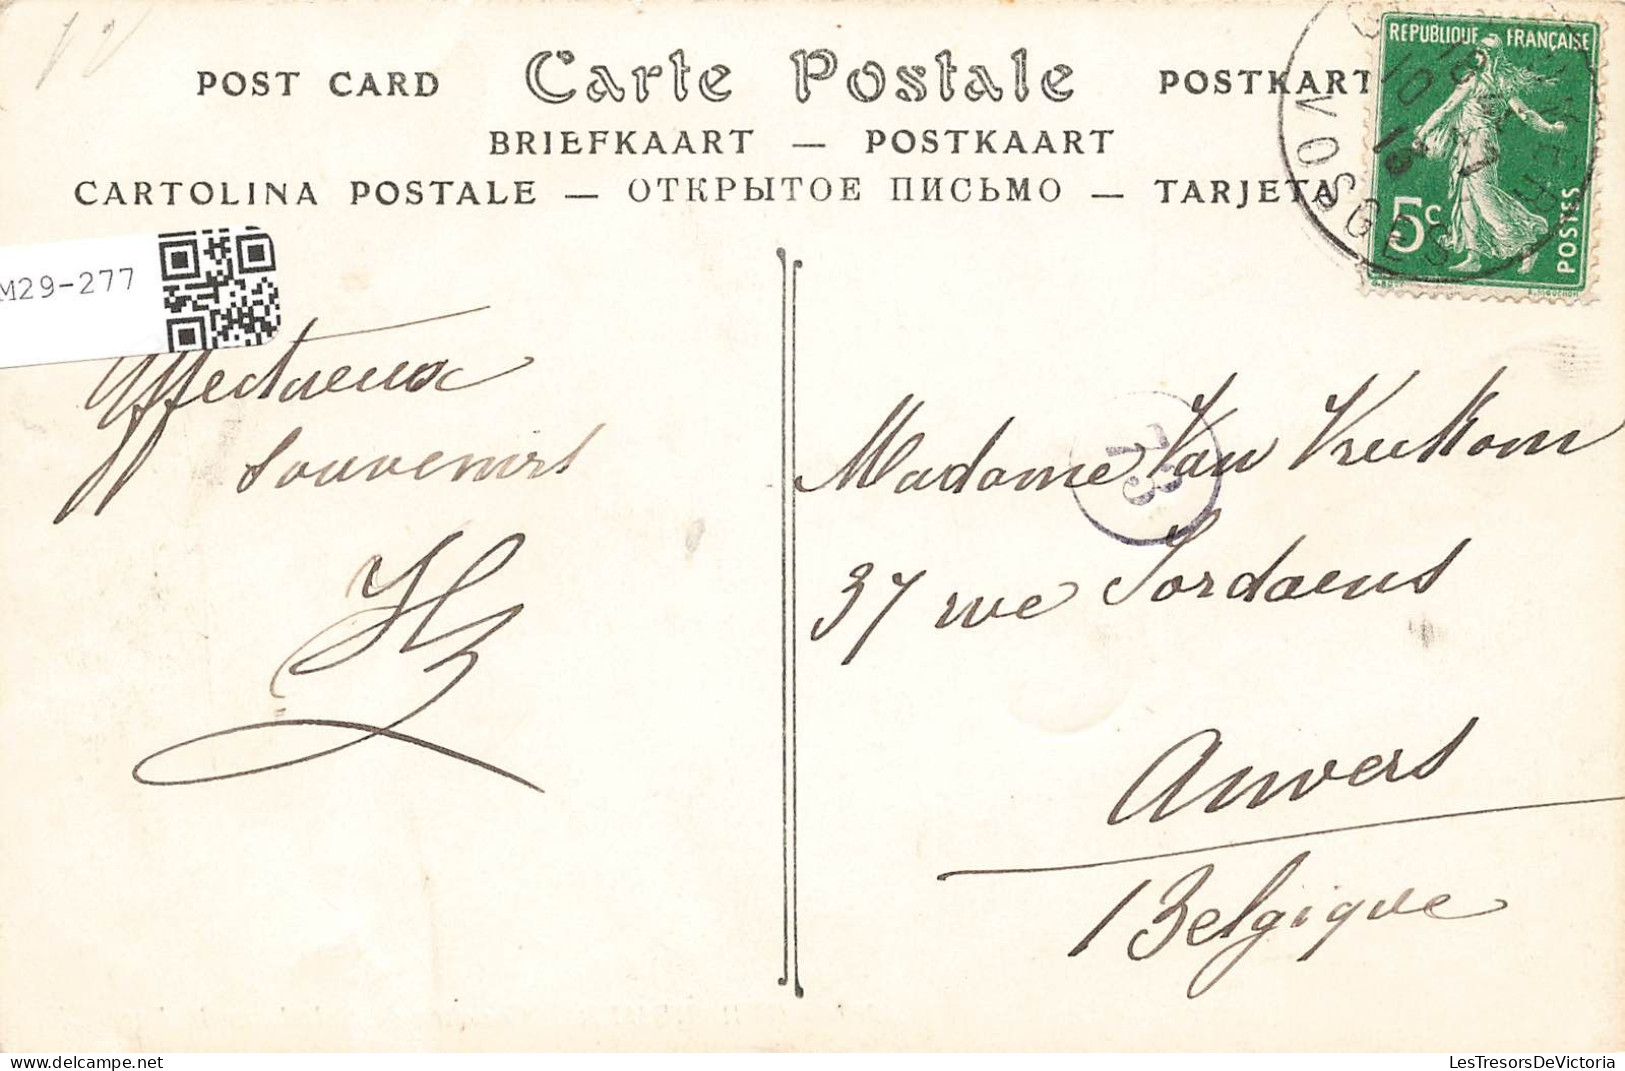 POST CARD Carte Postale POSTKART
BRIEFKAART — POSTKAART
CARTOLINA POSTALE — ОТКРЫТОЕ ПИСЬМО — TARJETA
REPUBLIQUE FRANÇAISE
5c
POSTES
VOSGES
M29-277
Affectueux
souvenirs
Madame Van
37 rue Jordaens
Anvers
Belgique
LesTresorsDeVictoria